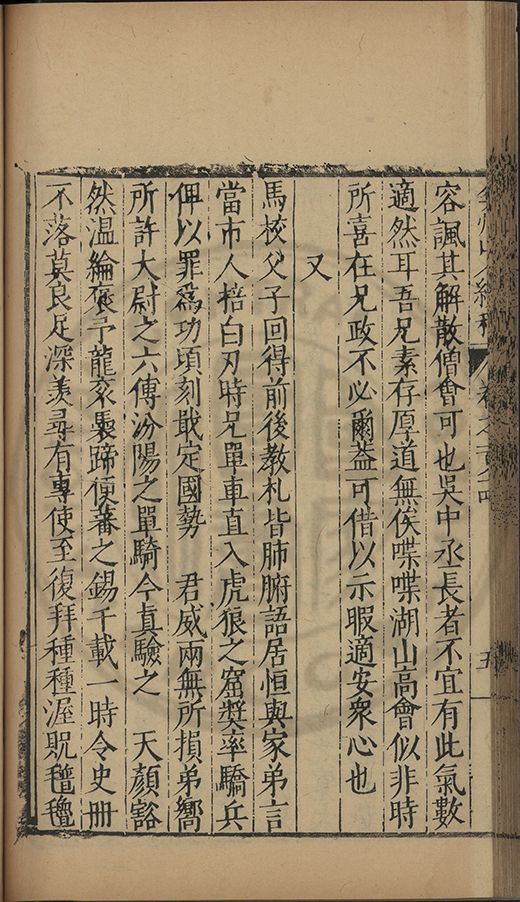 弇州山人續稿 卷之 五
容諷其解散僧會可也吳中丞長者不宜有此氣數
適然耳吾兄素存原道無俟喋喋湖山高會似非時
所喜在兄政不必爾蓋可借以示暇適安衆心也
又
馬校父子回得前後教札皆肺腑語居恒與家弟言
當市人掊白刃時兄單車直入虎狼之窟獎率驕兵
俾以罪爲功頃刻戡定國勢 君威兩無所損弟嚮
所許大尉之六傳汾陽之單騎今真驗之 天顏豁
然温綸褒予龍衮褭蹄便蕃之錫千載一時令史册
不落莫良足深羨尋有專使至復拜種種渥貺